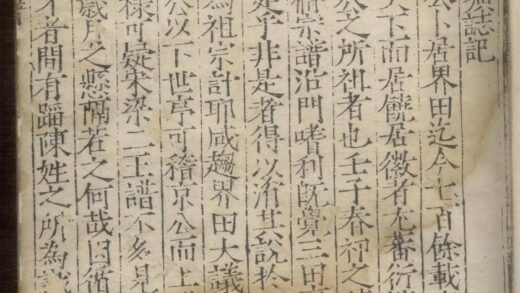 誌記
公下居界田迄今七百餘載
天下而居饒居徽者尤蕃衍
公之所祖者也壬子春初之
宗譜沿門嗜利旣覺三田
是乎非是者得以溷其說於
為祖宗計耶咸趨界田大議
公以下世亭可稽京公而上
可疑宋梁二王譜不多見
歲月之懸隔若之何哉因循
才者間有蹈陳姓之所為